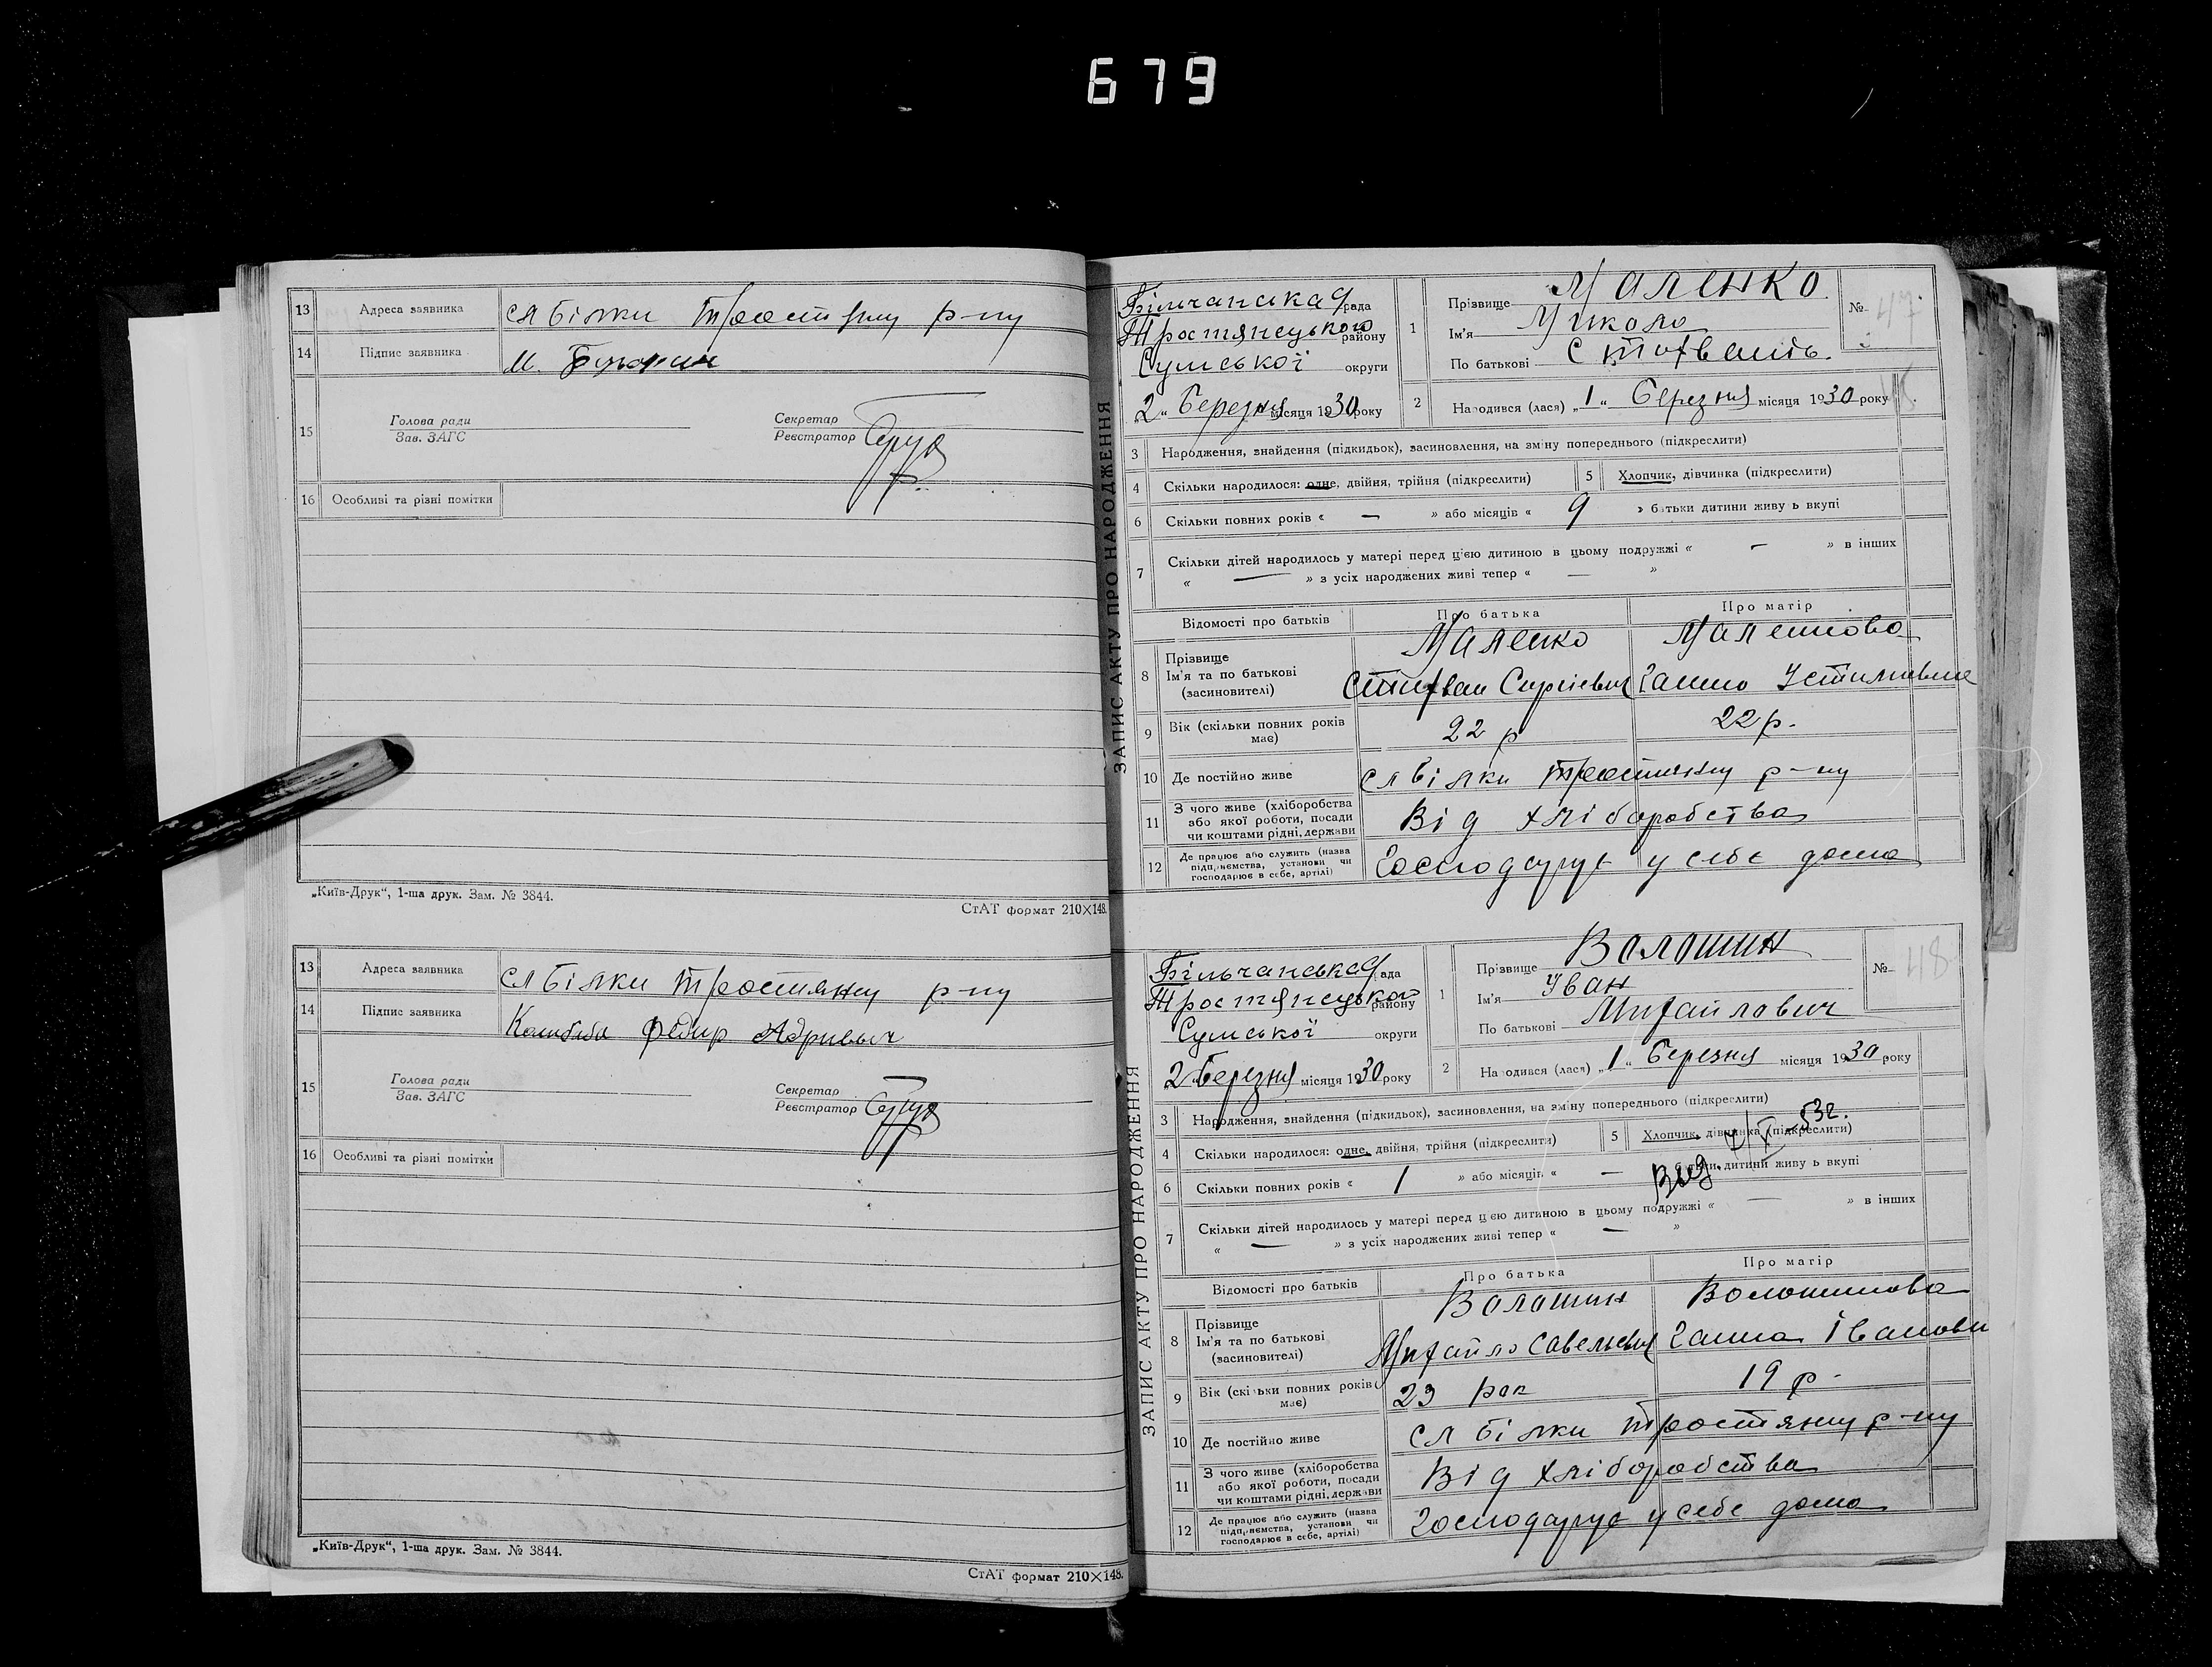 679
13 Адреса заявника сл Білки Тростянц р-ну
14 Підпис заявника М.
15 Голова ради Секретар
Зав. ЗАГС Реєстратор
16 Особливі та різні помітки
„Київ-Друк“, 1-ша друк. Зам. № 3844.
СтАТ формат 210×148.
13 Адреса заявника сл Білки Тростянц р-ну
14 Підпис заявника Федир
15 Голова ради Секретар
Зав. ЗАГС Реєстратор
16 Особливі та різні помітки
„Київ-Друк“, 1-ша друк. Зам. № 3844.
СтАТ формат 210×148.
ЗАПИС АКТУ ПРО НАРОДЖЕННЯ
Більчанська рада
Тростянецького району
Сумської округи
2 „ Березня місяця 1930 року
1 Прізвище Маленко № 47
Ім'я Микола
По батькові
2 Народився (лася) „1“ Березня місяця 1930 року
3 Народження, знайдення (підкидьок), засиновлення, на зміну попереднього (підкреслити)
4 Скільки народилося: одне, двійня, трійня (підкреслити) 5 Хлопчик, дівчинка (підкреслити)
6 Скільки повних років « — » або місяців « 9 » батьки дитини живуть вкупі
7 Скільки дітей народилось у матері перед цією дитиною в цьому подружжі « — » в інших
« — » з усіх народжених живі тепер « — »
Відомості про батьків Про батька Про матір
8 Прізвище Маленко
Ім'я та по батькові
(засиновителі)
9 Вік (скільки повних років має) 22 р 22 р.
10 Де постійно живе сл Білки Тростянц р-ну
11 З чого живе (хліборобства
або якої роботи, посади
чи коштами рідні, держави
Від хліборобства
12 Де працює або служить (назва
підприємства, установи чи
господарює в себе, артілі)
Господарує у себе дома
ЗАПИС АКТУ ПРО НАРОДЖЕННЯ
Більчанська рада
Тростянецької району
Сумської округи
2 „ Березня місяця 1930 року
1 Прізвище Волошин № 48
Ім'я Іван
По батькові Михайлович
2 Народився (лася) „1“ Березня місяця 1930 року
3 Народження, знайдення (підкидьок), засиновлення, на зміну попереднього (підкреслити)
4 Скільки народилося: одне, двійня, трійня (підкреслити) 5 Хлопчик, дівчинка (підкреслити)
6 Скільки повних років « 1 » або місяців « — батьки дитини живуть вкупі
7 Скільки дітей народилось у матері перед цією дитиною в цьому подружжі « — » в інших
« — » з усіх народжених живі тепер « — »
Відомості про батьків Про батька Про матір
8 Прізвище Волошин Волошинова
Ім'я та по батькові Михайло Савельевич Ганна Іванови
(засиновителі)
9 Вік (скільки повних років має) 23 рок 19 р.
10 Де постійно живе сл Білки Тростянц р-ну
11 З чого живе (хліборобства
або якої роботи, посади
чи коштами рідні, держави
Від хліборобства
12 Де працює або служить (назва
підприємства, установи чи
господарює в себе, артілі)
Господарує у себе дома